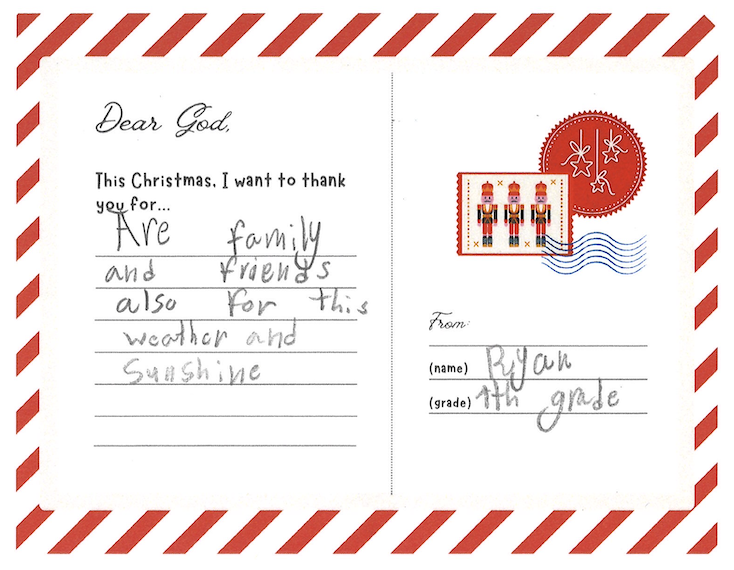 Dear God,
This Christmas, I want to thank
you for...
Are family
and friends
also for this
weather and
Sunshine
From:
(name) Ryan
(grade) 1th grade